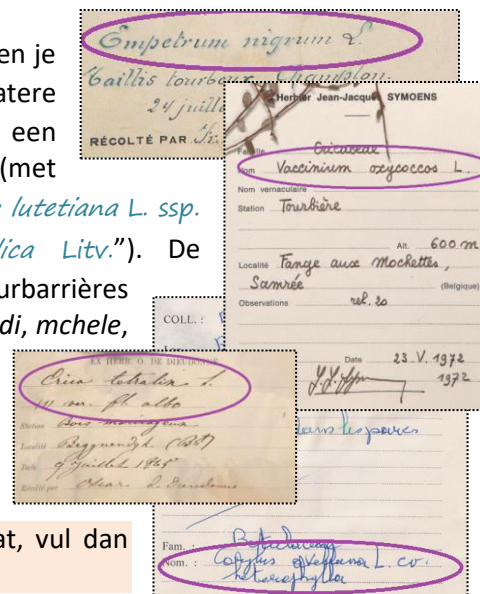 en je
atere
een
(met
lutetiana L. ssp.
lica Litv."). De
urbarrières
di, mchele,
at, vul dan
Empetrum nigrum L.
Taillis tourbeux, Champlon.
24 juill
RÉCOLTÉ PAR Fr.
Herbier Jean-Jacques SYMOENS
Famille Ericaceae
Nom Vaccinium oxycoccos L.
Nom vernaculaire
Station Tourbière
Alt. 600 m
Localité Fange aux Mochettes,
Samrée (Belgique)
Observations rel. 20
Date 23. V. 1972
1972
COLL. :
dans les parcs
EX HERB. O. DE DIEUDONNÉ
Erica tetralix L.
var. fl. albo
Station Bois marécageux
Localité (Bt)
Date 9 juillet 1865
Récolté par Oscar de Dieudonné
Fam. : Betulaceae
Nom. : Corylus avellana L. cv.
heterophylla